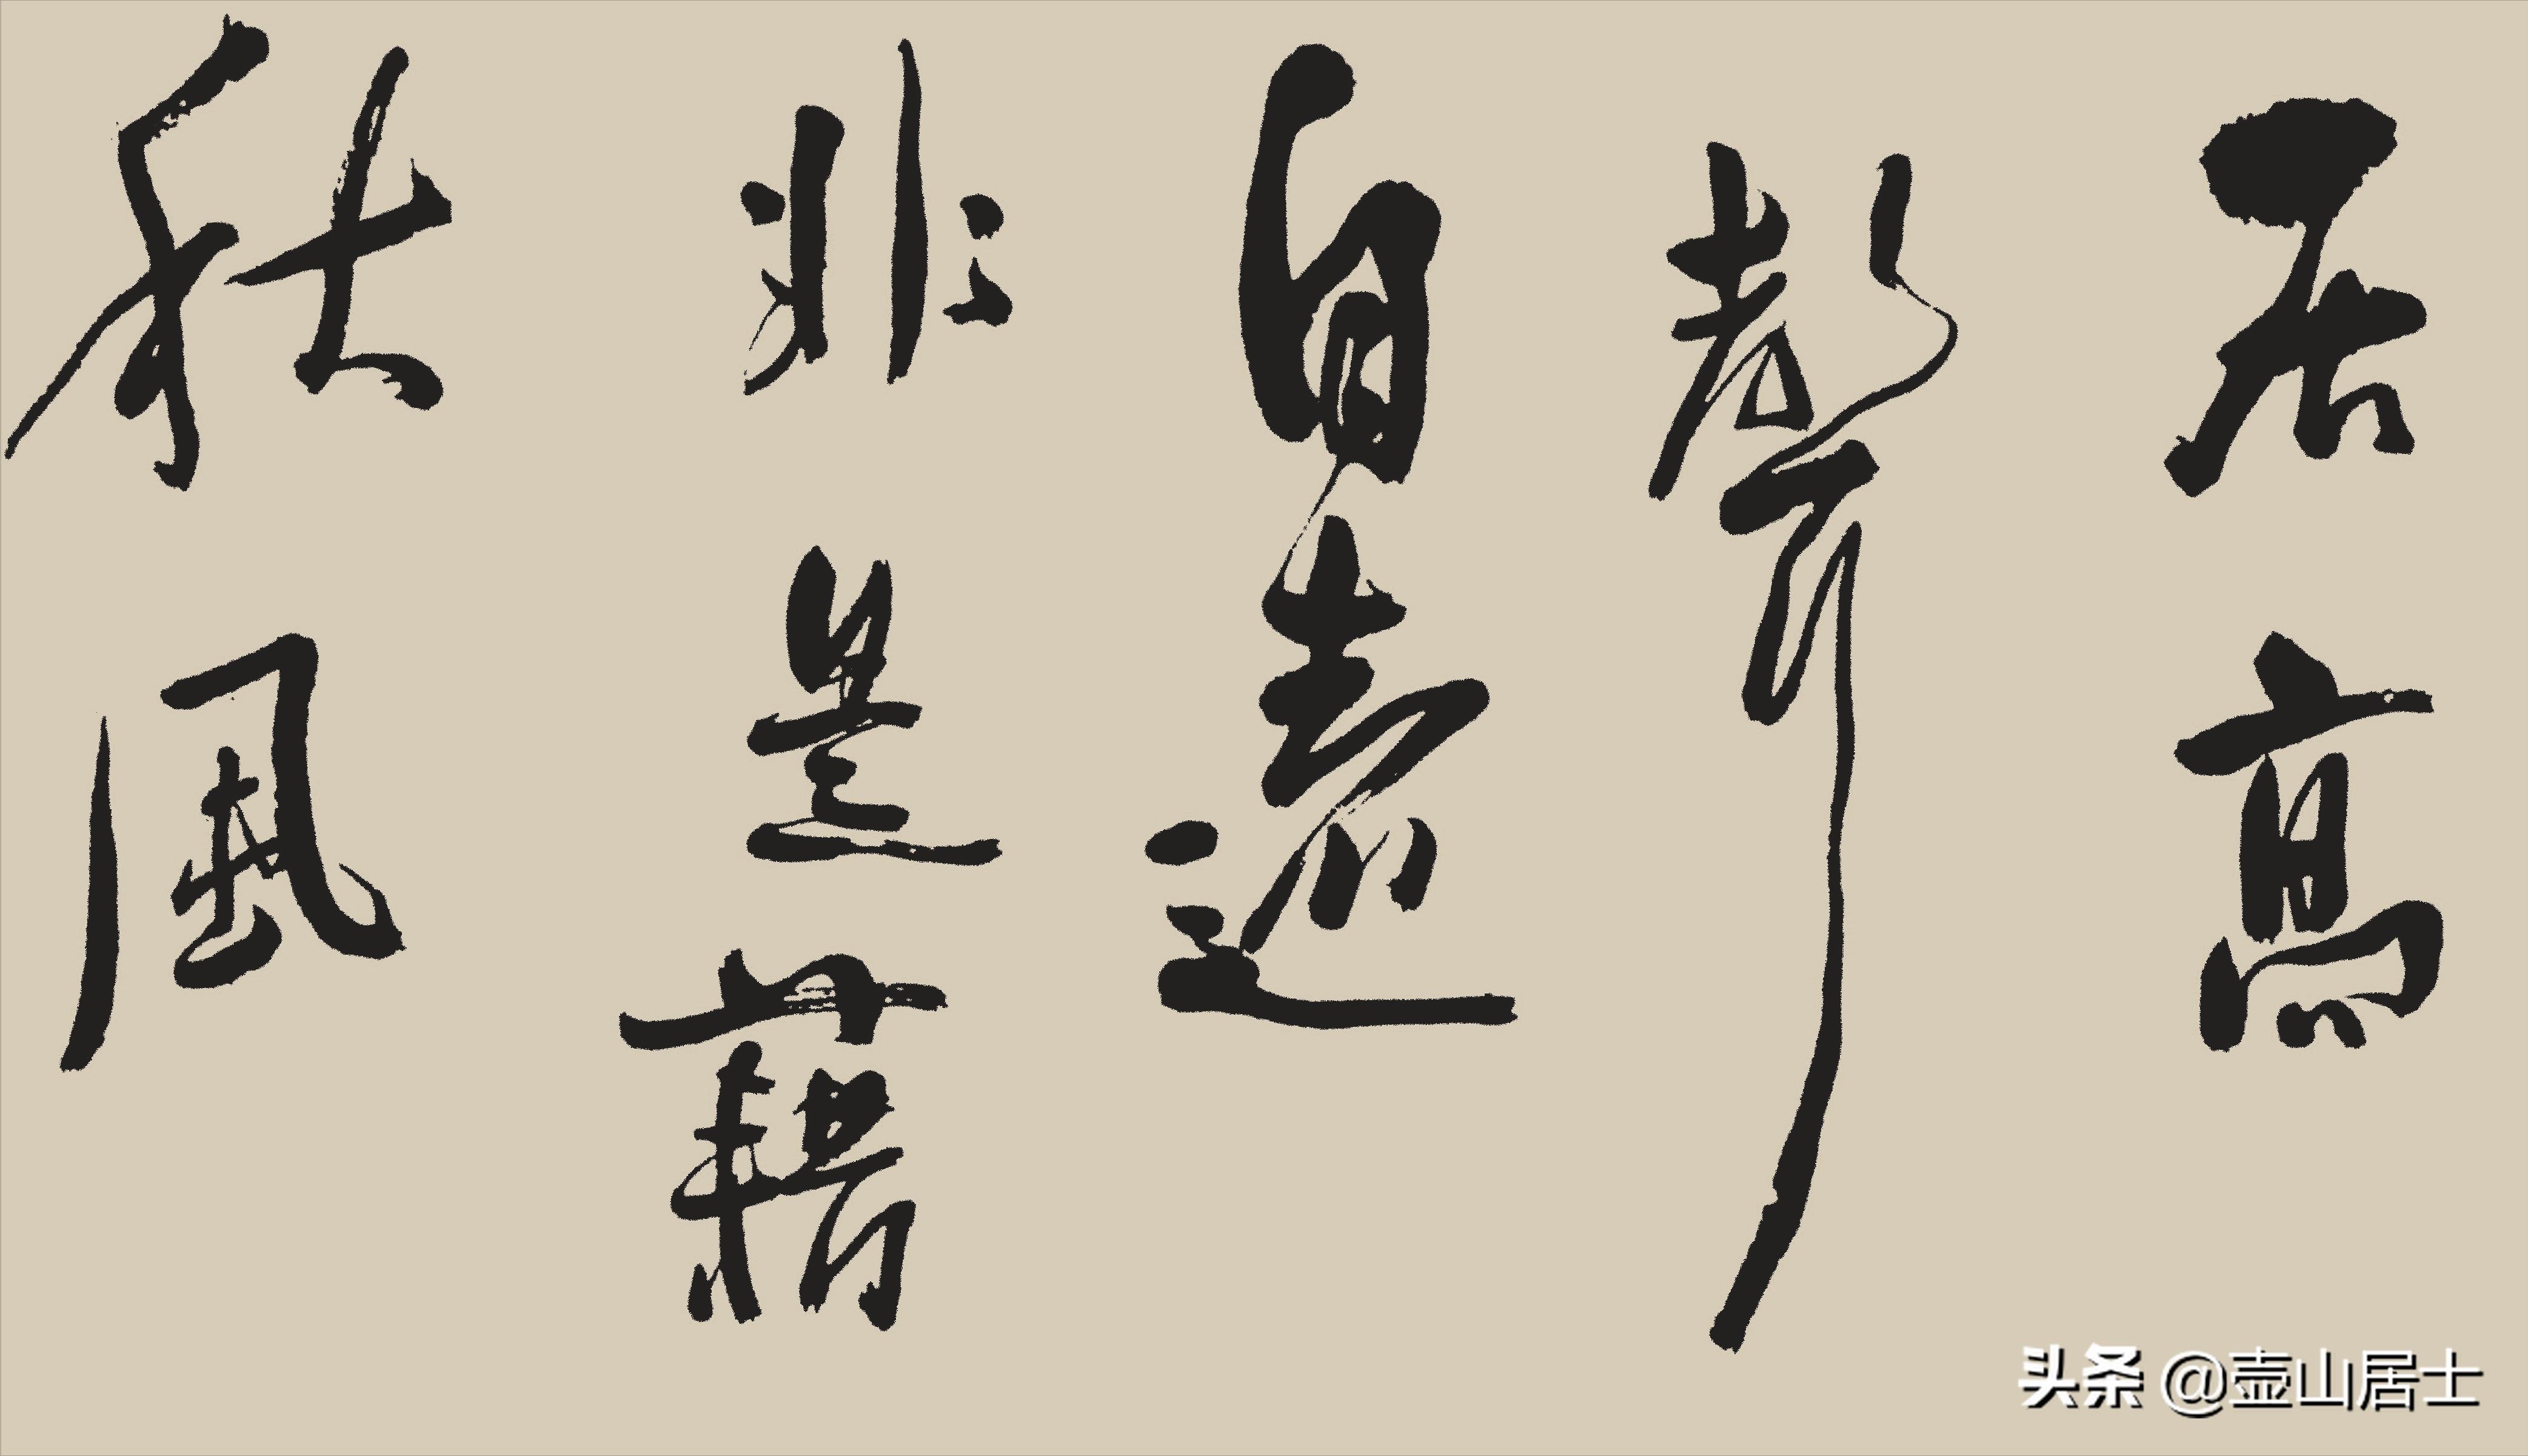 居高
聲
自遠
非是藉
秋風
头条 @壶山居士